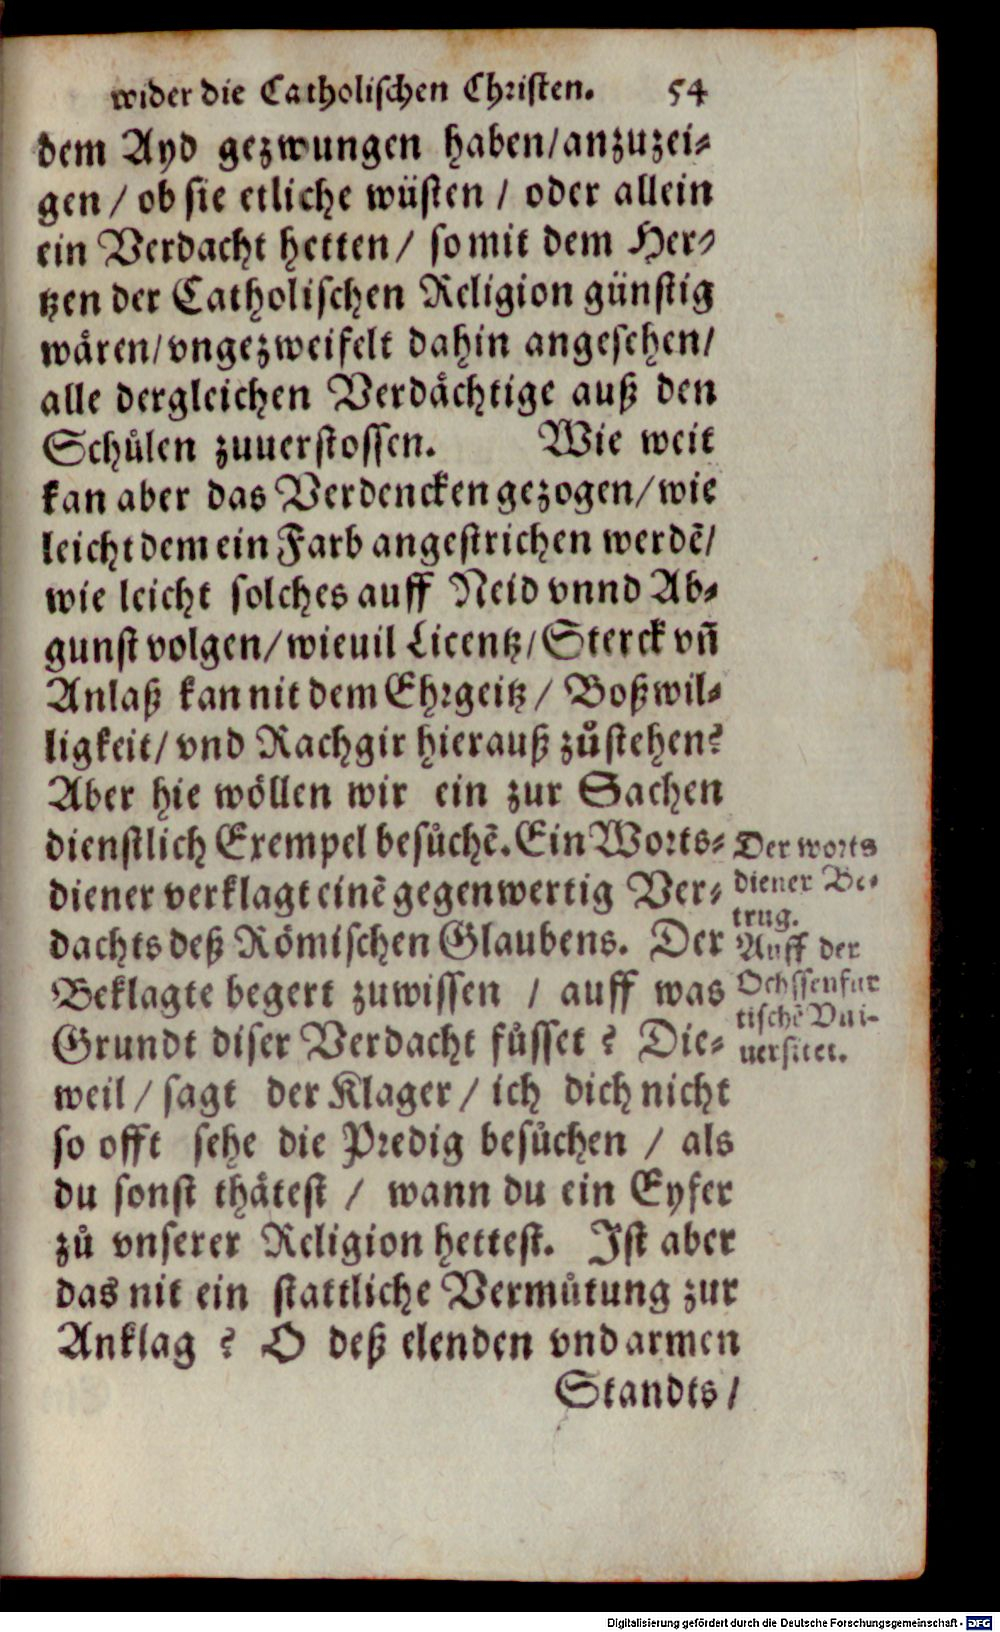 wider die Catholischen Christen. 54
dem Ayd gezwungen haben/anzuzei-
gen / ob sie etliche wüsten / oder allein
ein Verdacht hetten / so mit dem Her-
tzen der Catholischen Religion günstig
wåren/vngezweifelt dahin angesehen/
alle dergleichen Verdåchtige auß den
Schůlen zuuerstossen. Wie weit
kan aber das Verdencken gezogen/wie
leicht dem ein Farb angestrichen werdẽ/
wie leicht solches auff Neid vnnd Ab-
gunst volgen/wieuil Licentz/Sterck vñ
Anlaß kan nit dem Ehrgeitz / Boßwil-
ligkeit/ vnd Rachgir hierauß zůstehen?
Aber hie wöllen wir ein zur Sachen
dienstlich Exempel besůchẽ. Ein Worts-
diener verklagt einẽ gegenwertig Ver-
dachts deß Römischen Glaubens. Der
Beklagte begert zuwissen / auff was
Grundt diser Verdacht fůsset ? Die-
weil / sagt der Klager / ich dich nicht
so offt sehe die Predig besůchen / als
du sonst thåtest / wann du ein Eyfer
zů vnserer Religion hettest. Ist aber
das nit ein stattliche Vermůtung zur
Anklag ? O deß elenden vnd armen
Standts /
Der worts
diener Be-
trug.
Auff der
Ochssenfur
tischẽ Vni-
uersitet.
Digitalisierung gefördert durch die Deutsche Forschungsgemeinschaft - DFG